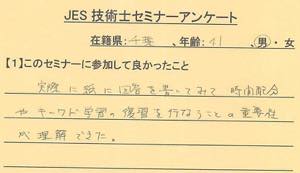 JES 技術士セミナーアンケート
在籍県:千葉、年齢:41 男・女
【1】このセミナーに参加して良かったこと
実際に紙に回答を書いてみて 時間配分
やキーワード学習の復習を行なうことの重要性
が理解できた。